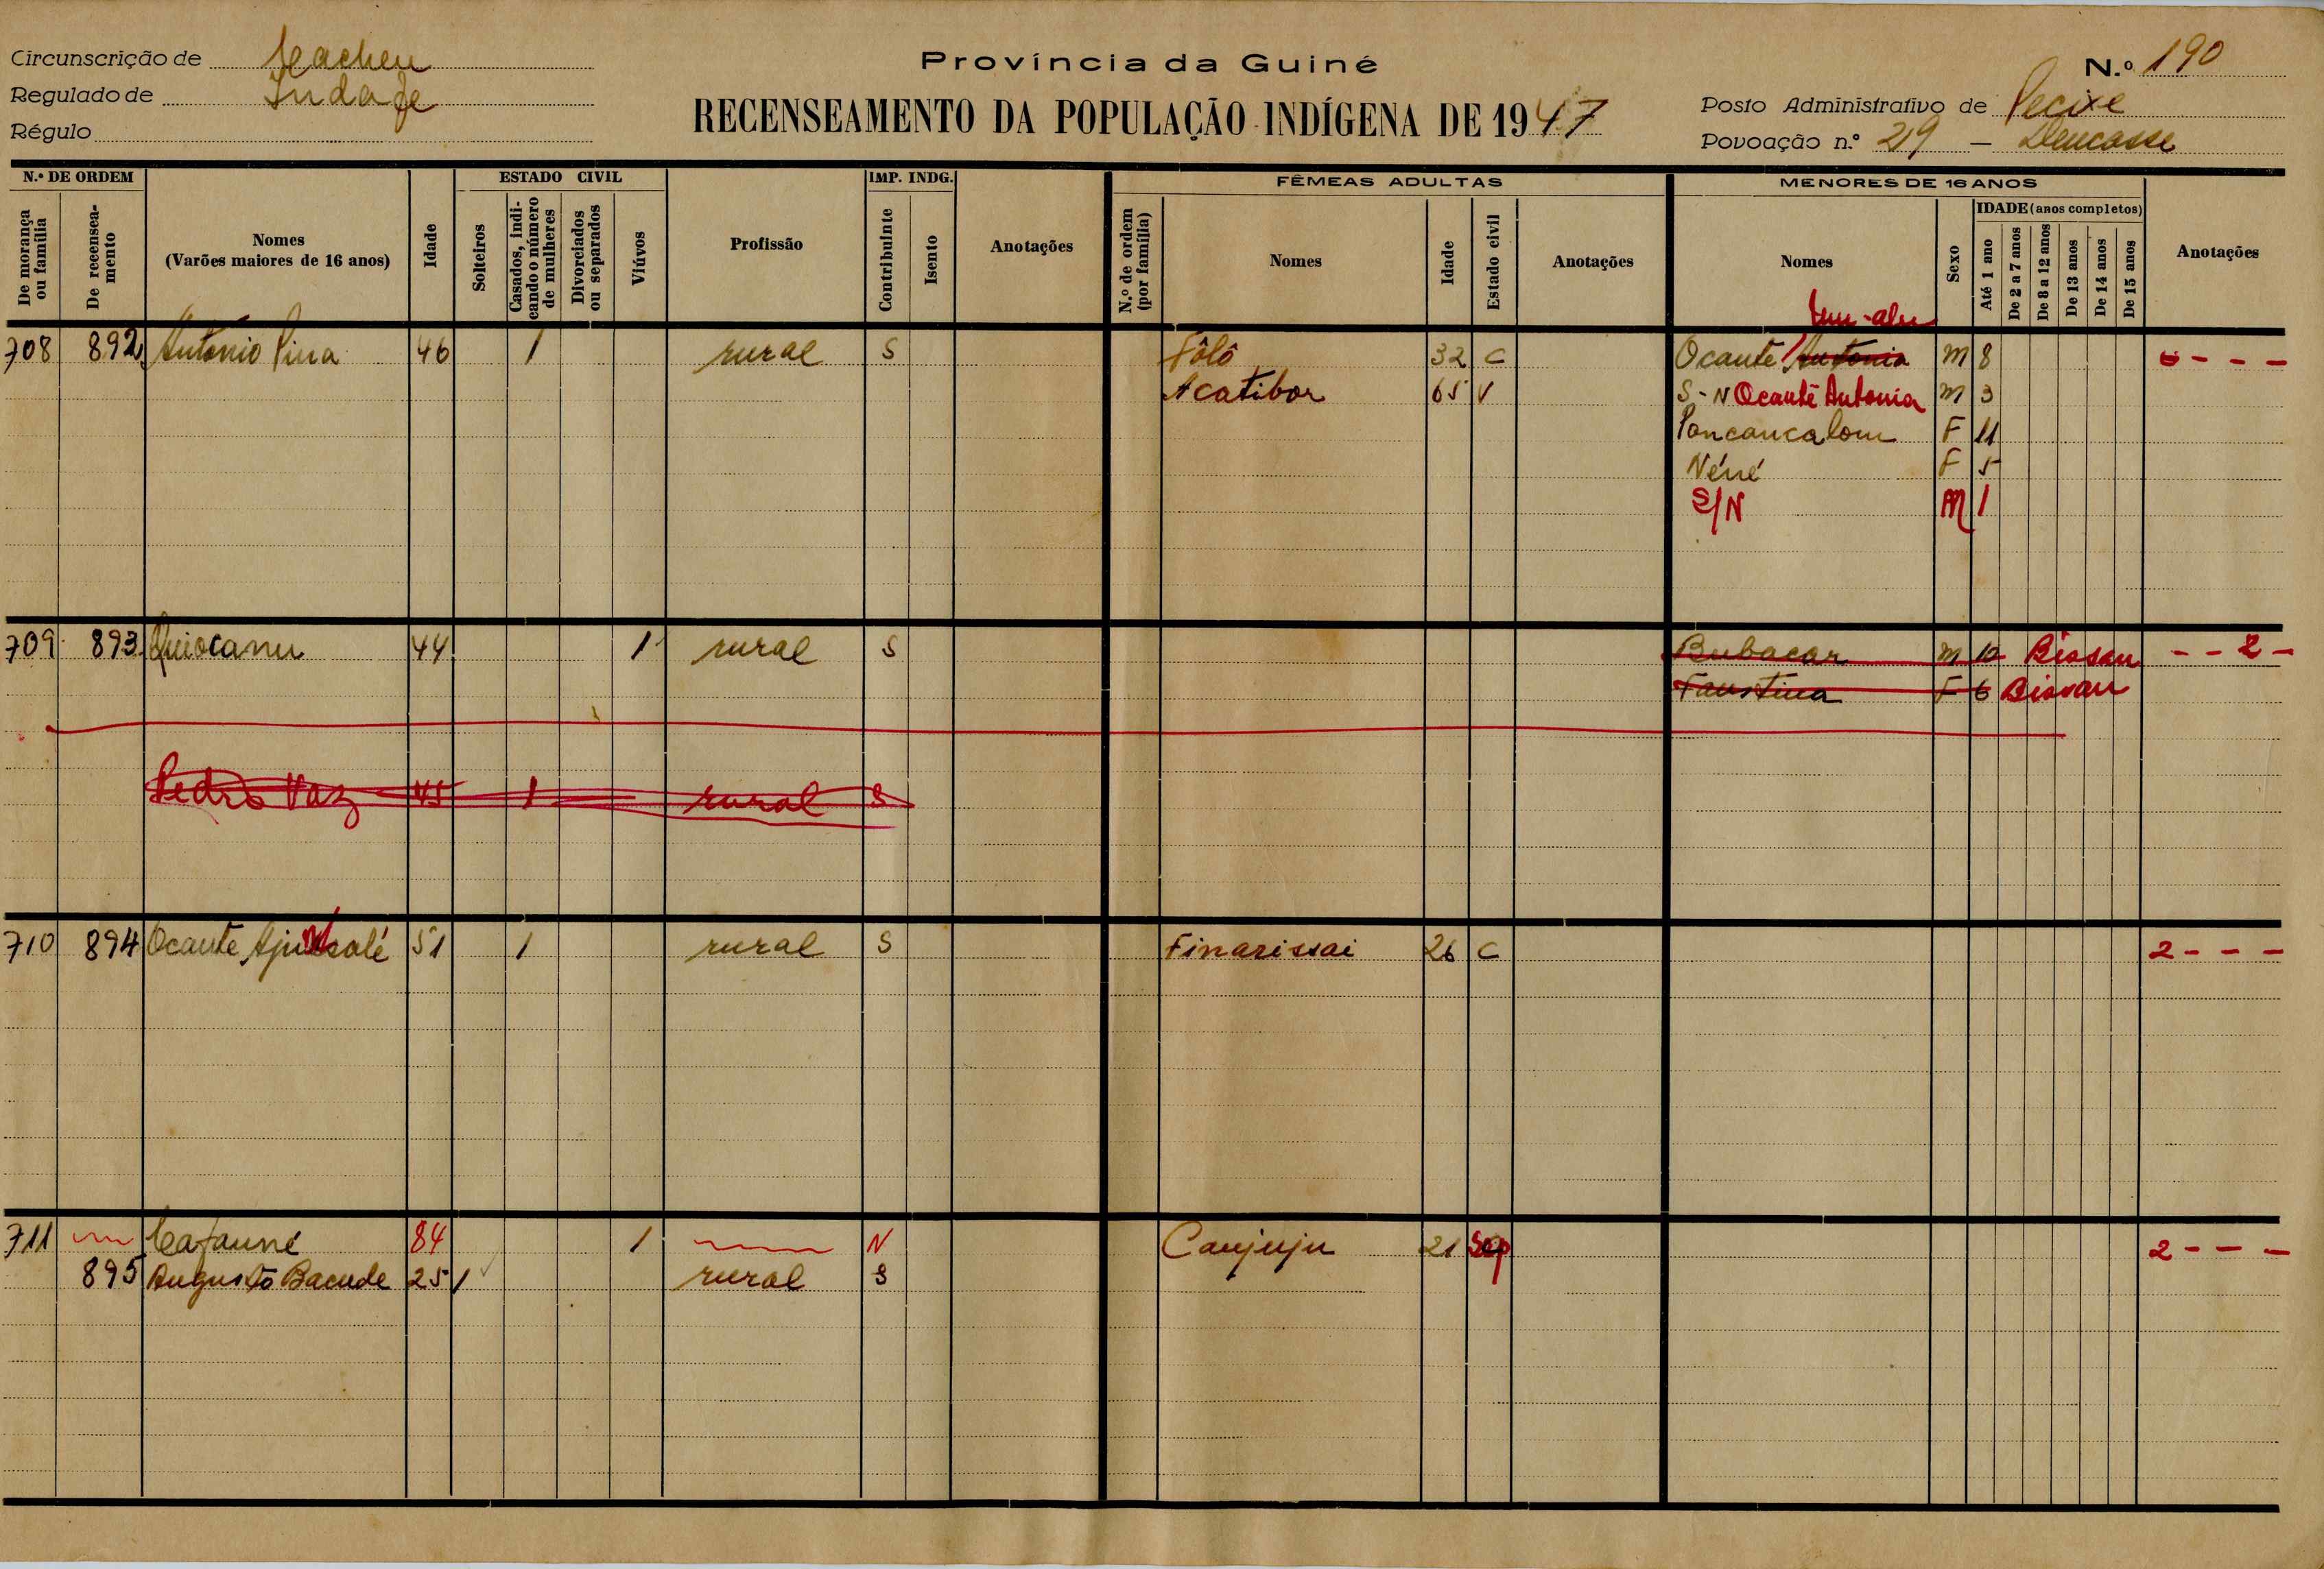 Circunscrição de Cacheu
Regulado de Indafe
Régulo
Província da Guiné
RECENSEAMENTO DA POPULAÇÃO INDÍGENA DE 1947
N.º 190
Posto Administrativo de Pecixe
Povoação n.º 219 —
N.º DE ORDEM
De morança ou família
De recenseamento
Nomes
(Varões maiores de 16 anos)
Idade
ESTADO CIVIL
Solteiros
Casados, indicando o número de mulheres
Divorciados ou separados
Viúvos
Profissão
IMP. INDG.
Contribuinte
Isento
Anotações
FÊMEAS ADULTAS
N.º de ordem (por família)
Nomes
Idade
Estado civil
Anotações
MENORES DE 16 ANOS
Nomes
Sexo
IDADE (anos completos)
Até 1 ano
De 2 a 7 anos
De 8 a 12 anos
De 13 anos
De 14 anos
De 15 anos
Anotações
708 892 António Pina 46 1 rural S Fôlô 32 C Ocante Antonia M 8 - - -
Acatibor 65 V S-N Ocante Antonia M 3
Poncancalom F 11
Néné F 5
S/N M 1
709 893 Quiocanu 44 1 rural S Bubacar M 10 Bissau - - 2 -
Faustina F 6 Bissau
Pedro Vaz 45 1 rural S
710 894 Ocante 51 1 rural S Finarissai 26 C 2 - - -
711 Cafauné 84 1 N Caujuju 21 Sep 2 - - -
895 Augusto Bacude 25 1 rural S